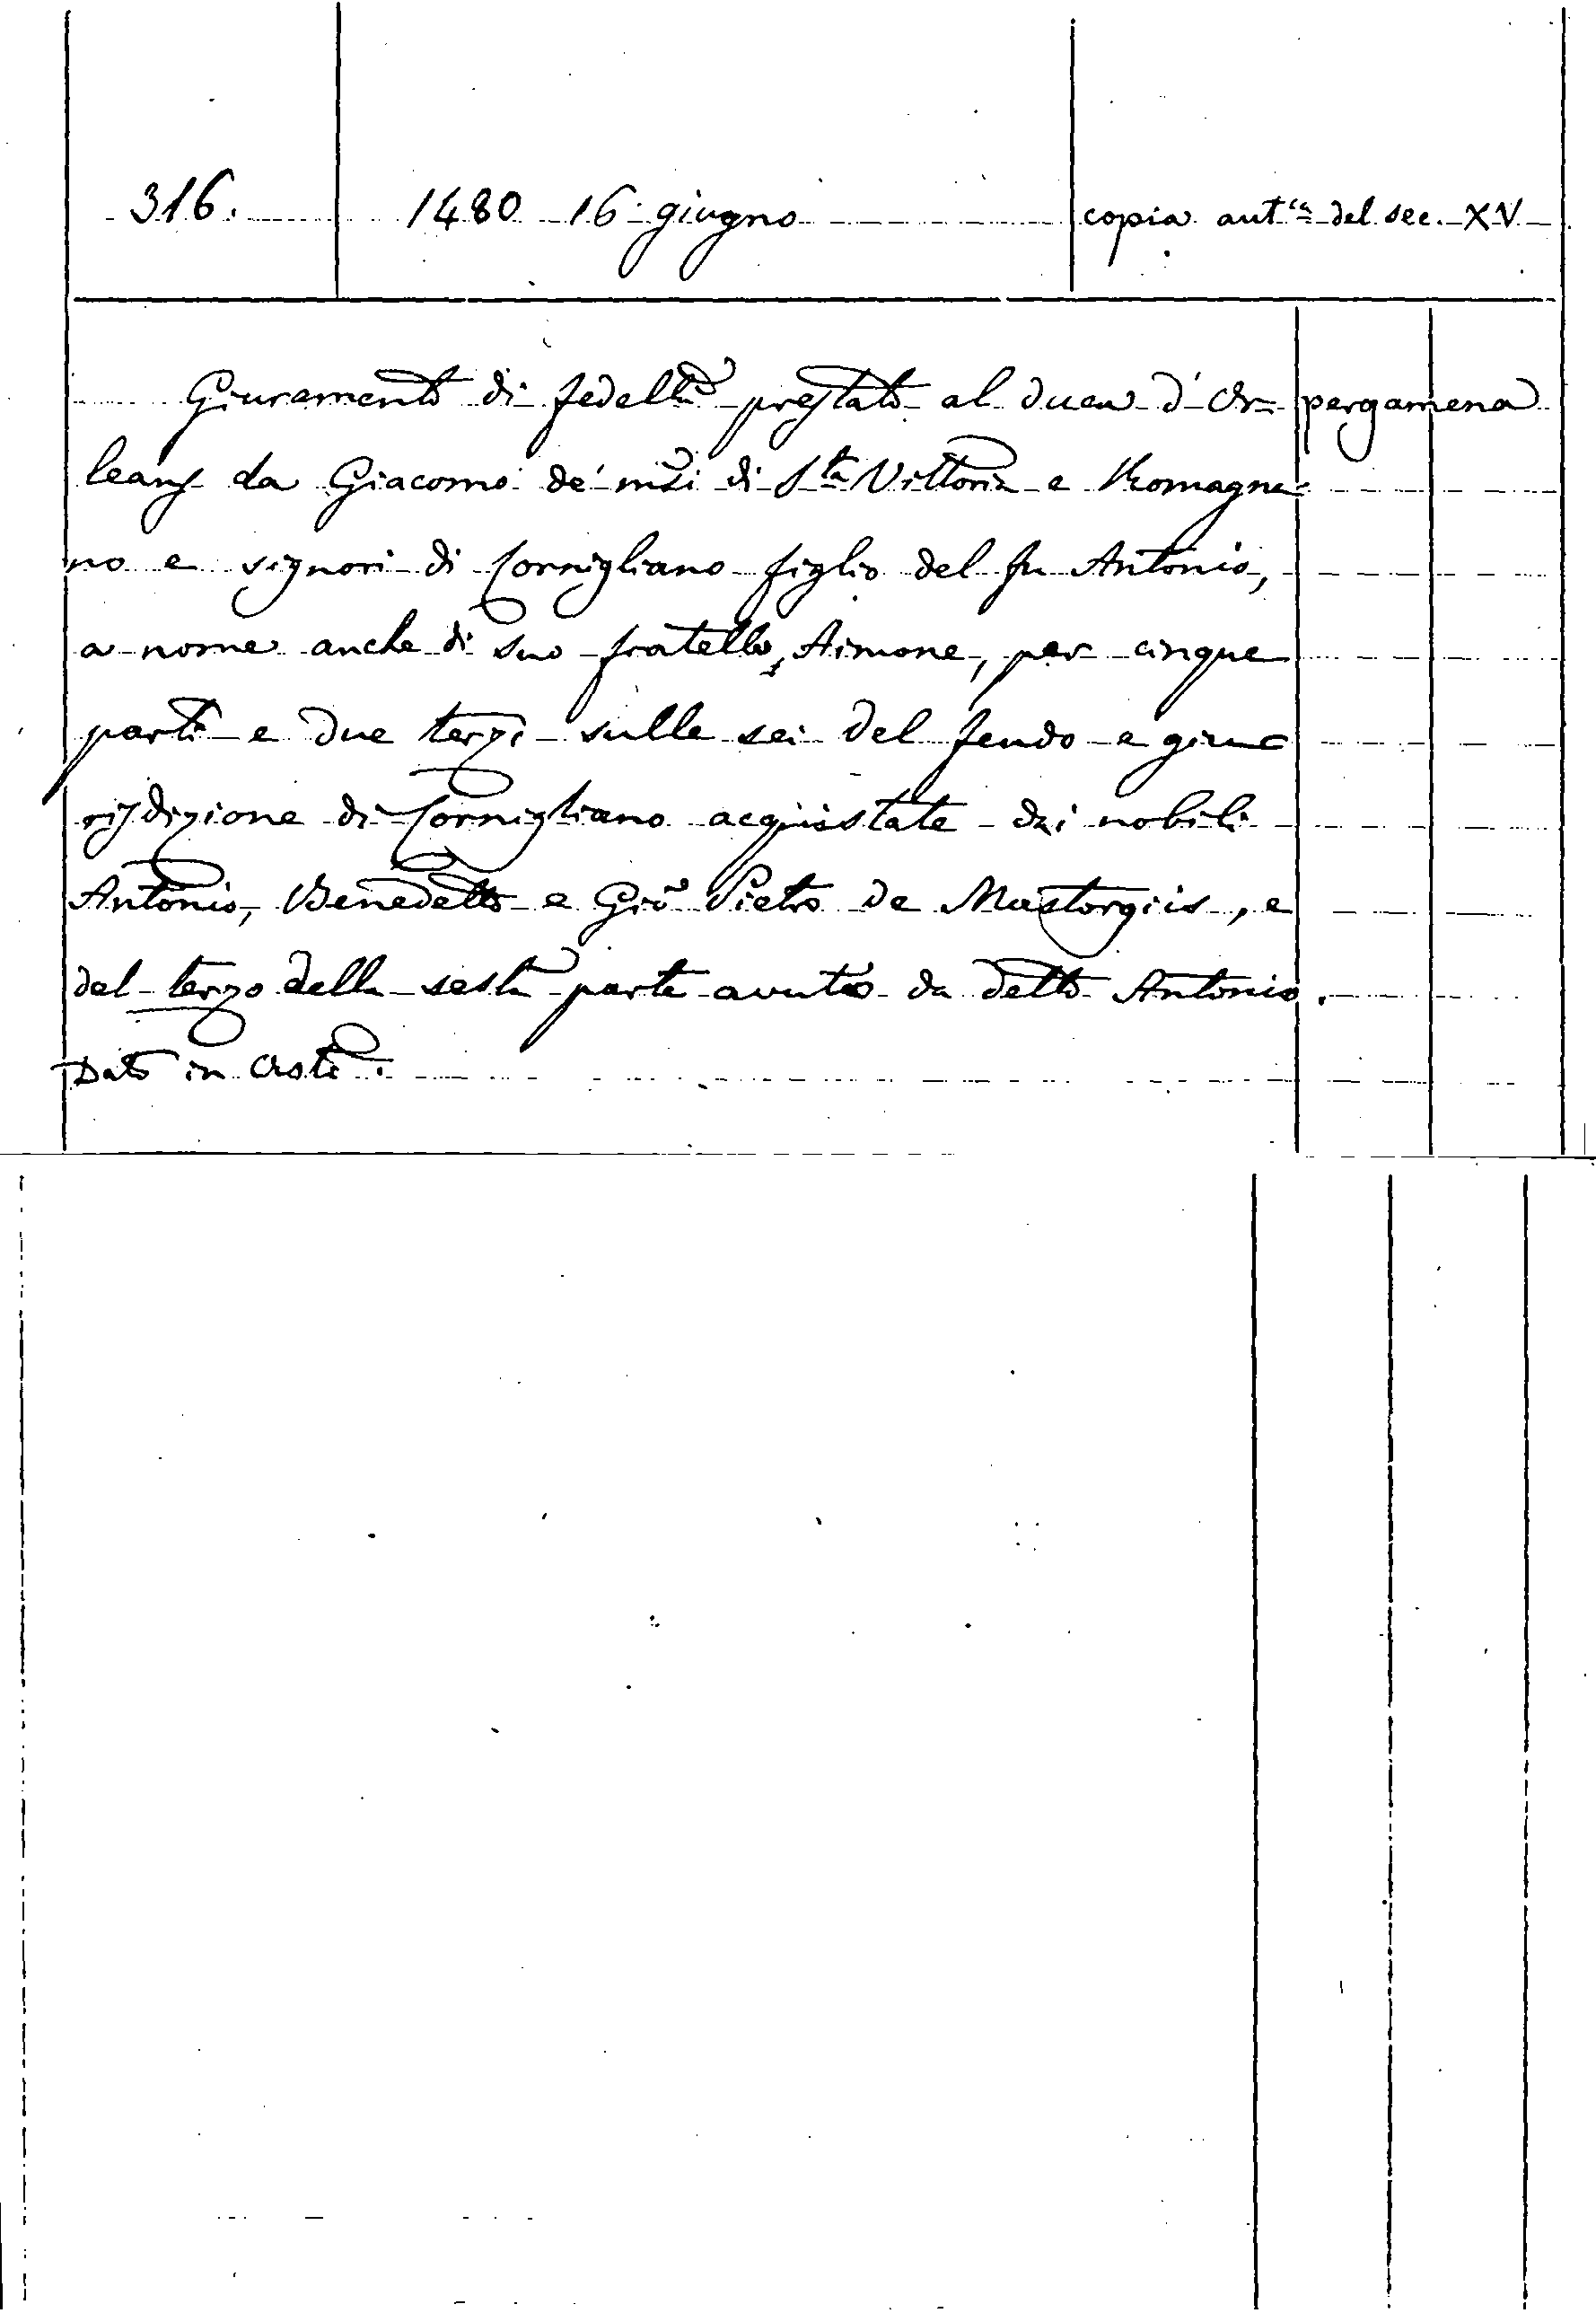 316. 1480 16 giugno copia aut.ca del sec. XV
Giuramento di fedeltà prestato al duca d'Or= pergamena
leans da Giacomo de' m.si di S.ta Vittoria e Romagna=
no e signori di Cornigliano figlio del fu Antonio,
a nome anche di suo fratello, Aimone, per cinque
parti e due terzi sulle sei del feudo e giu=
risdizione di Cornigliano acquistate dai nobili
Antonio, Benedetto e Gio Pietro de Mastorgiis, e
del terzo della sesta parte avuto da detto Antonio.
Dato in Asti.